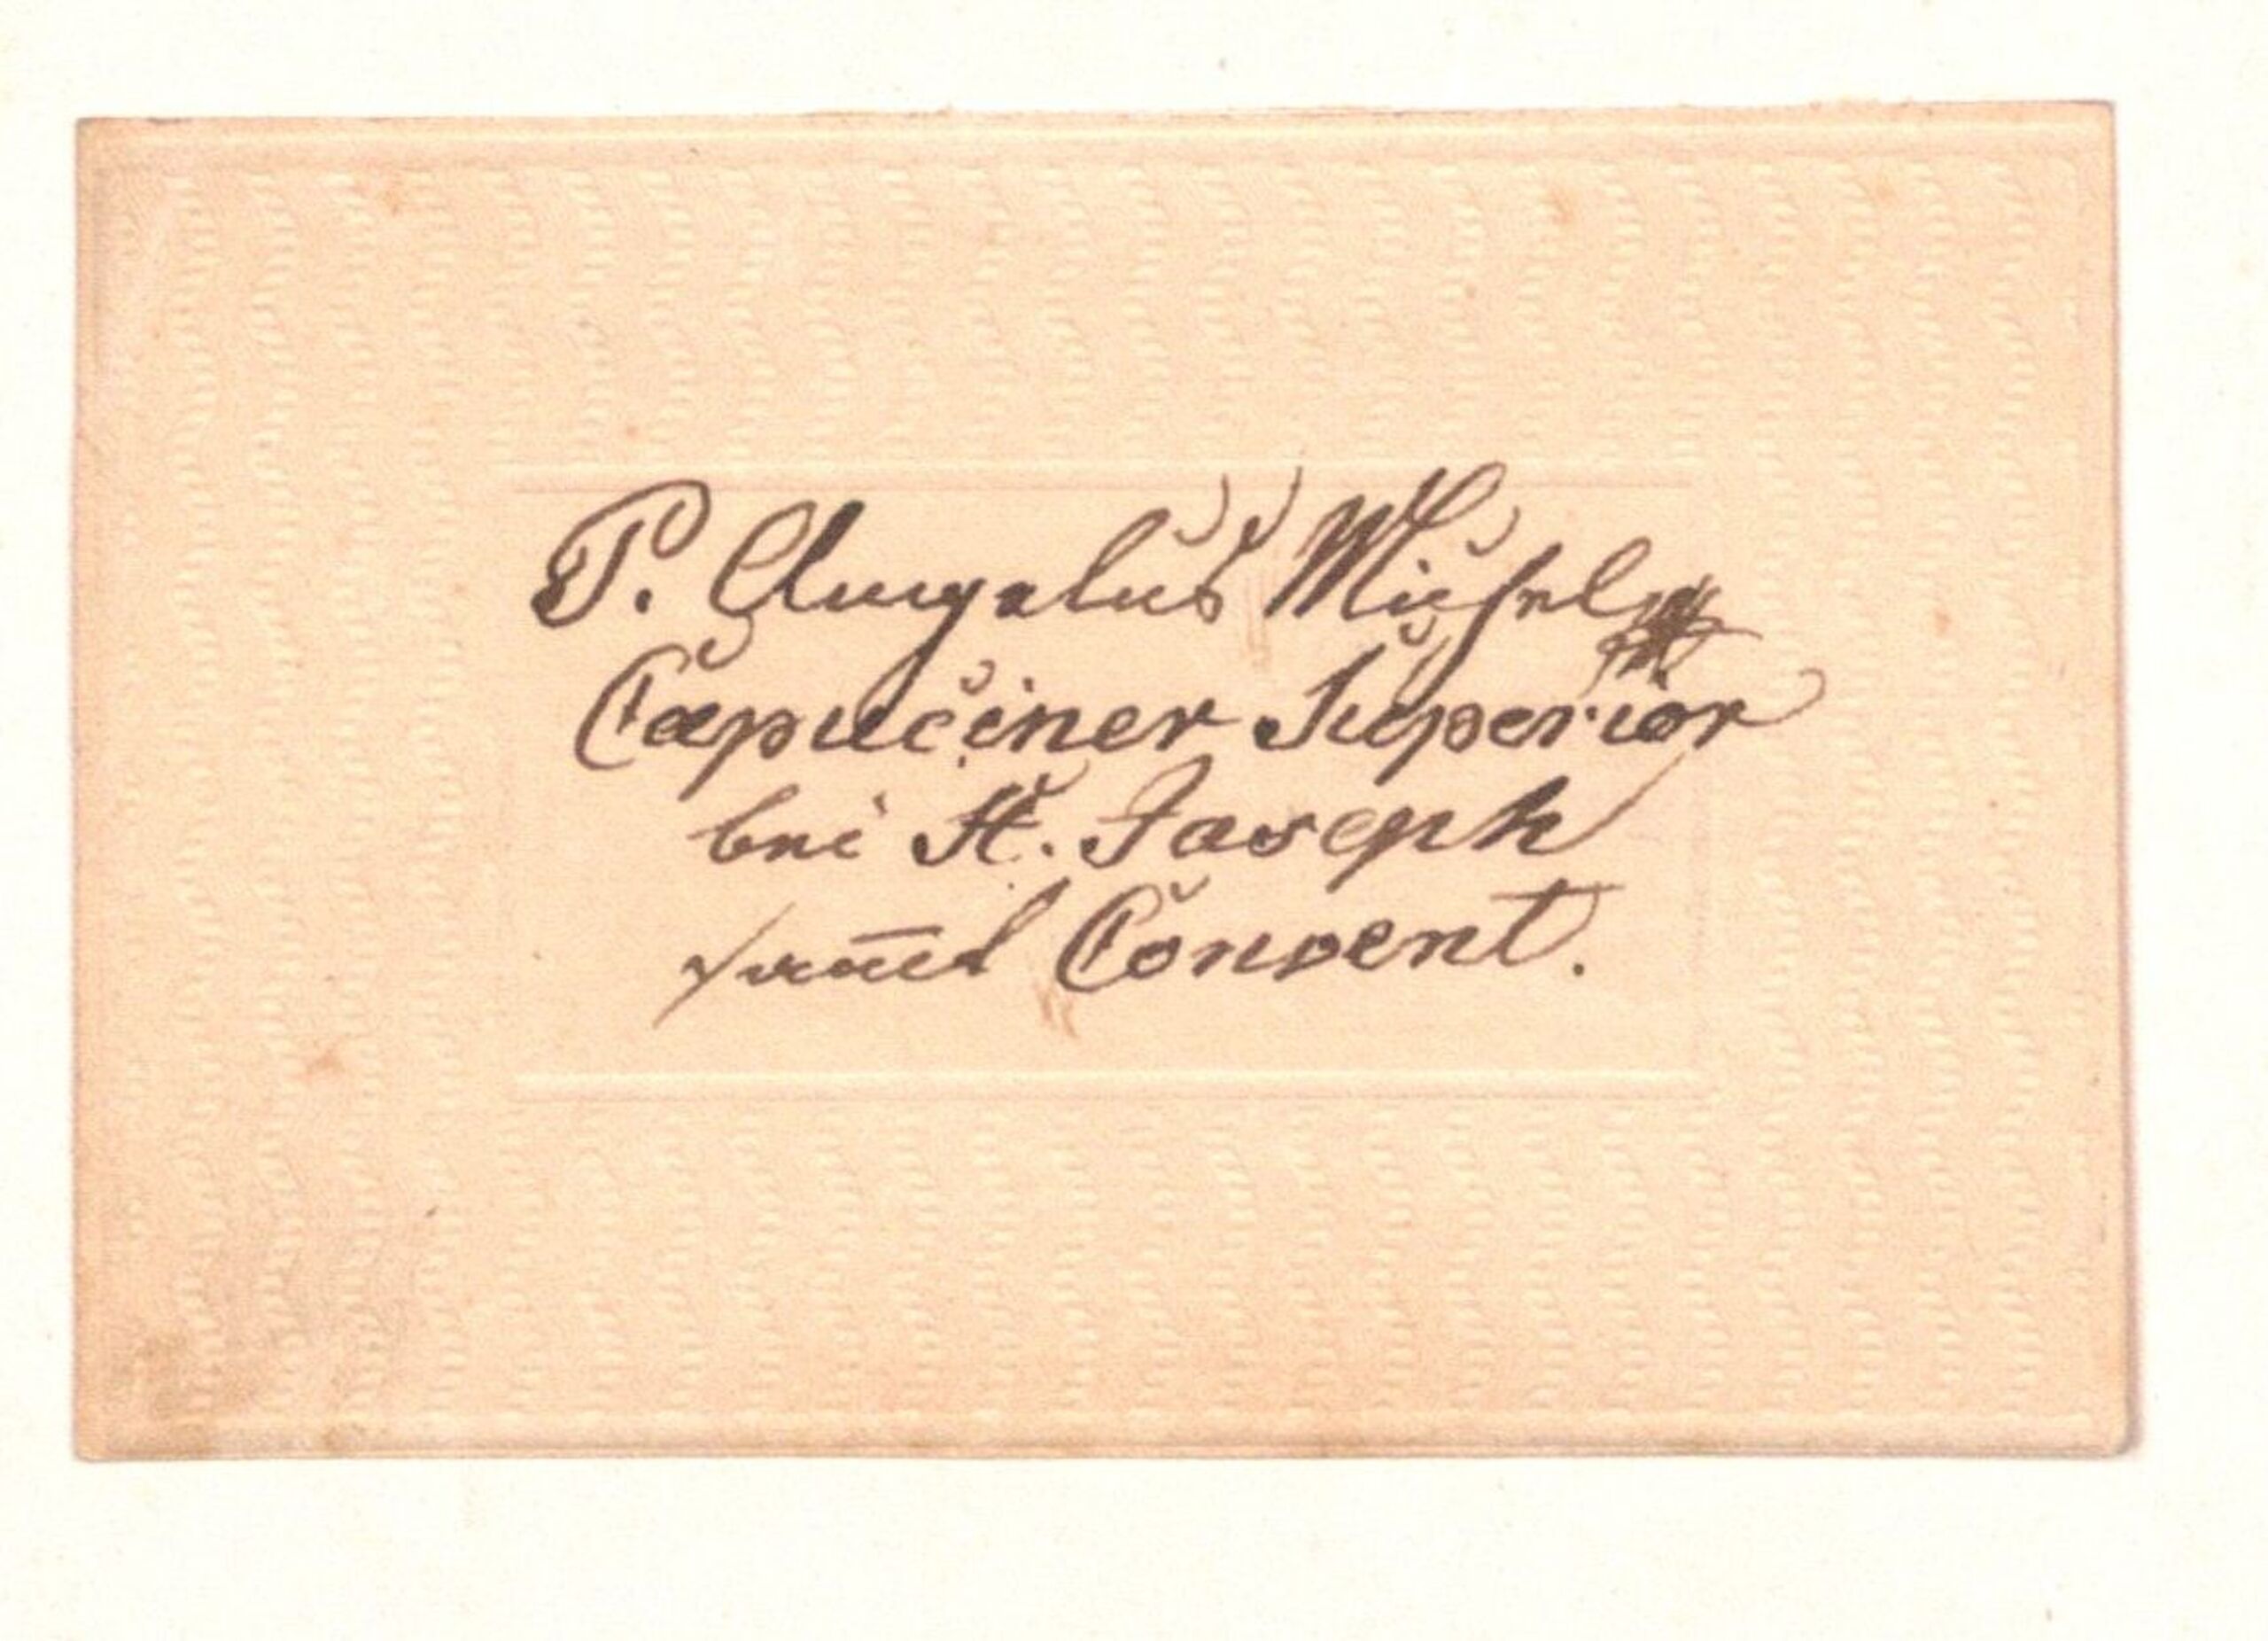 P. Angelus Michel
Capuciner Superior
bei St. Joseph
sammt Convent.